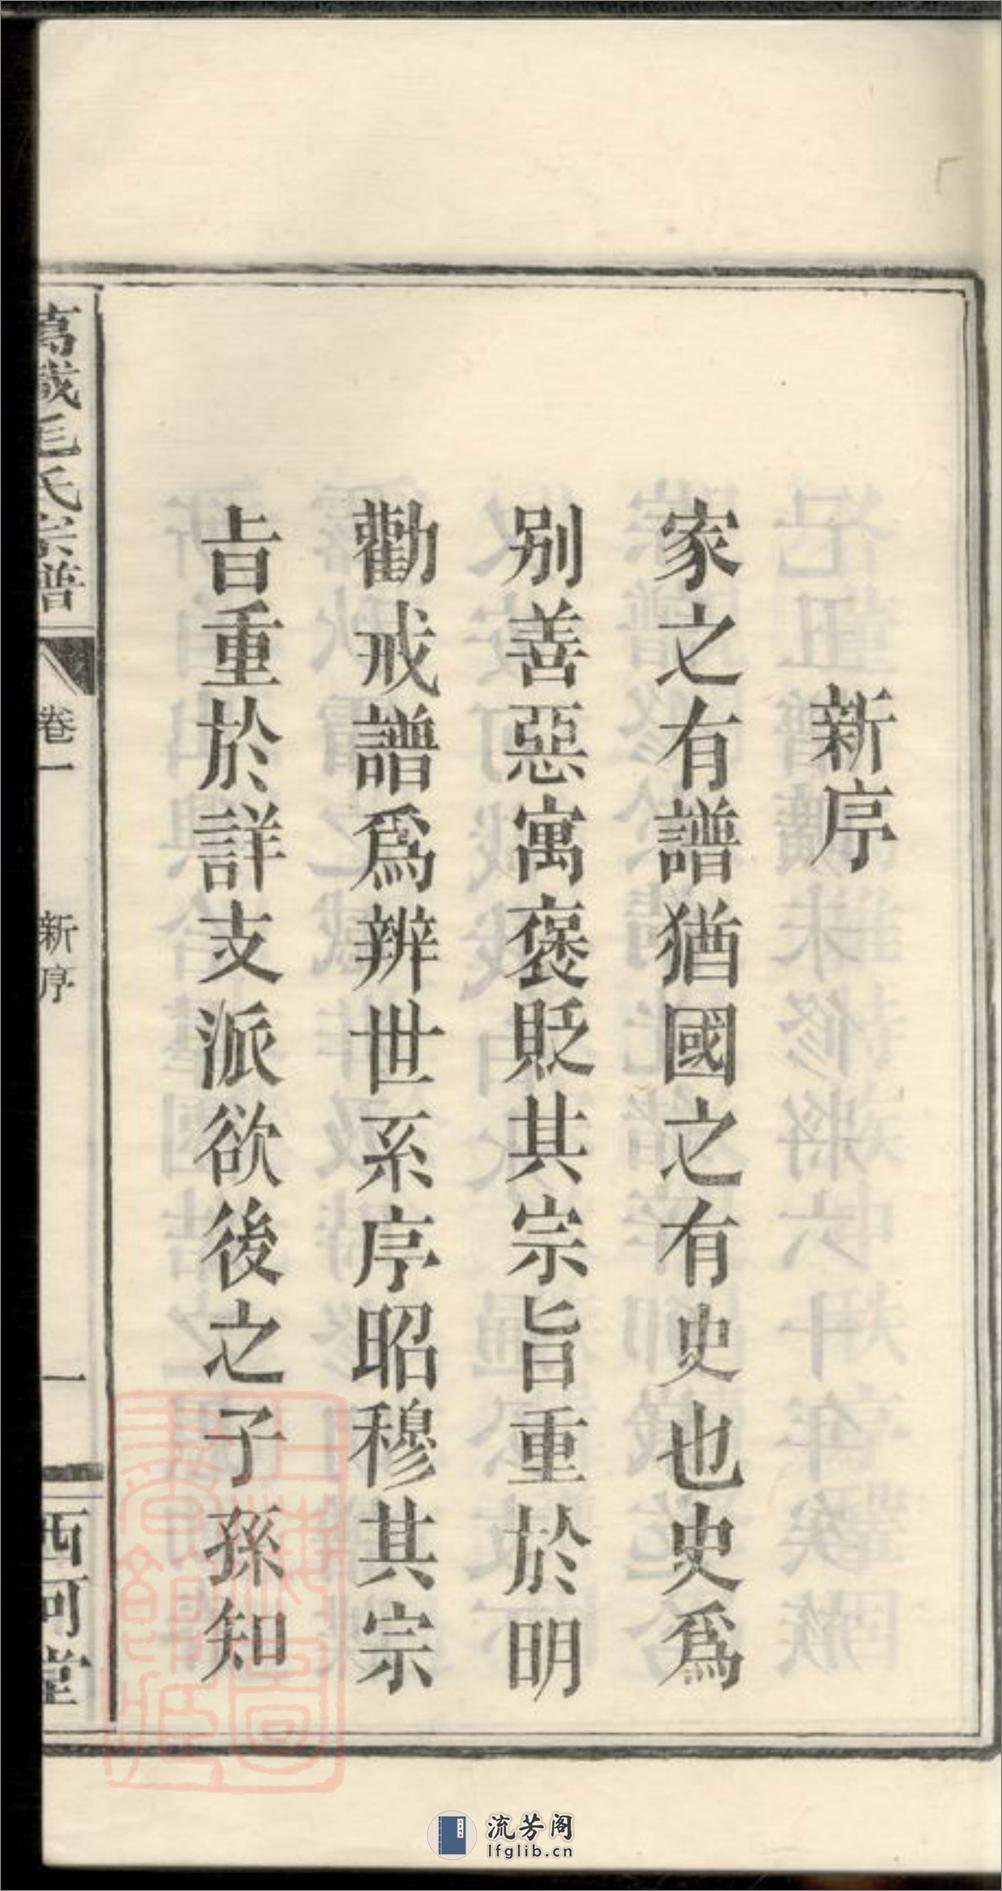 新序
家之有譜猶國之有史也史爲
別善惡寓褒貶其宗旨重於明
勸戒譜爲辨世系序昭穆其宗
旨重於詳支派欲後之子孫知
萬載毛氏宗譜
卷一
新序
一
西河堂
流芳阁
lfglib.cn